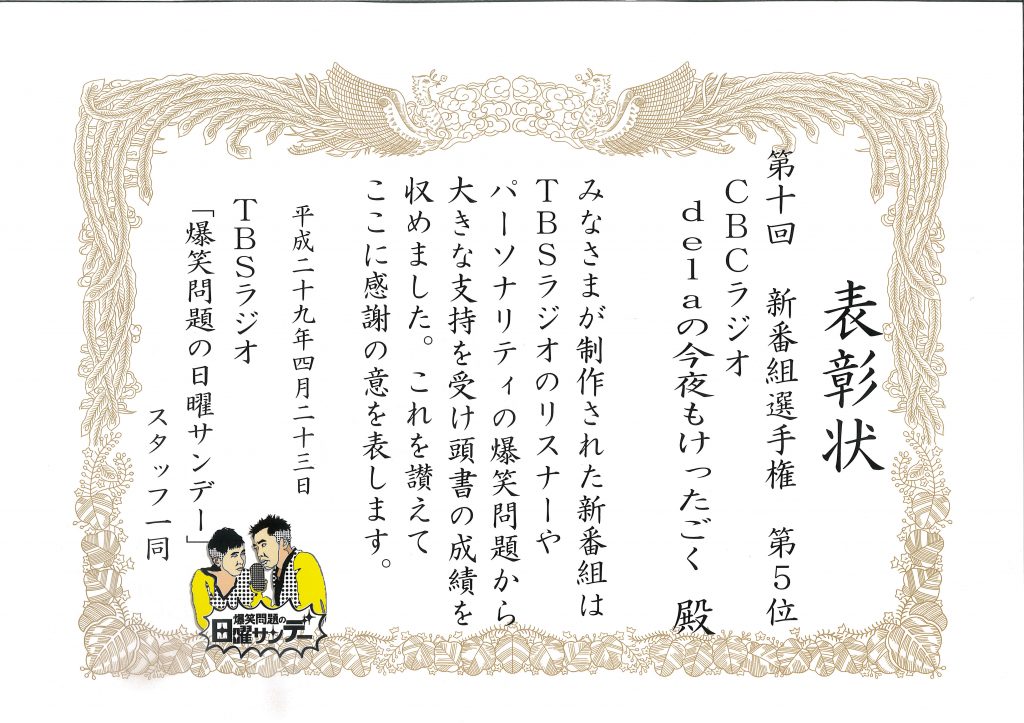 表彰状
第十回　新番組選手権　第５位
ＣＢＣラジオ
ｄｅｌａの今夜もけったごく　殿
みなさまが制作された新番組は
ＴＢＳラジオのリスナーや
パーソナリティの爆笑問題から
大きな支持を受け頭書の成績を
収めました。これを讃えて
ここに感謝の意を表します。
平成二十九年四月二十三日
ＴＢＳラジオ
「爆笑問題の日曜サンデー」
スタッフ一同
爆笑問題の
日曜サンデー